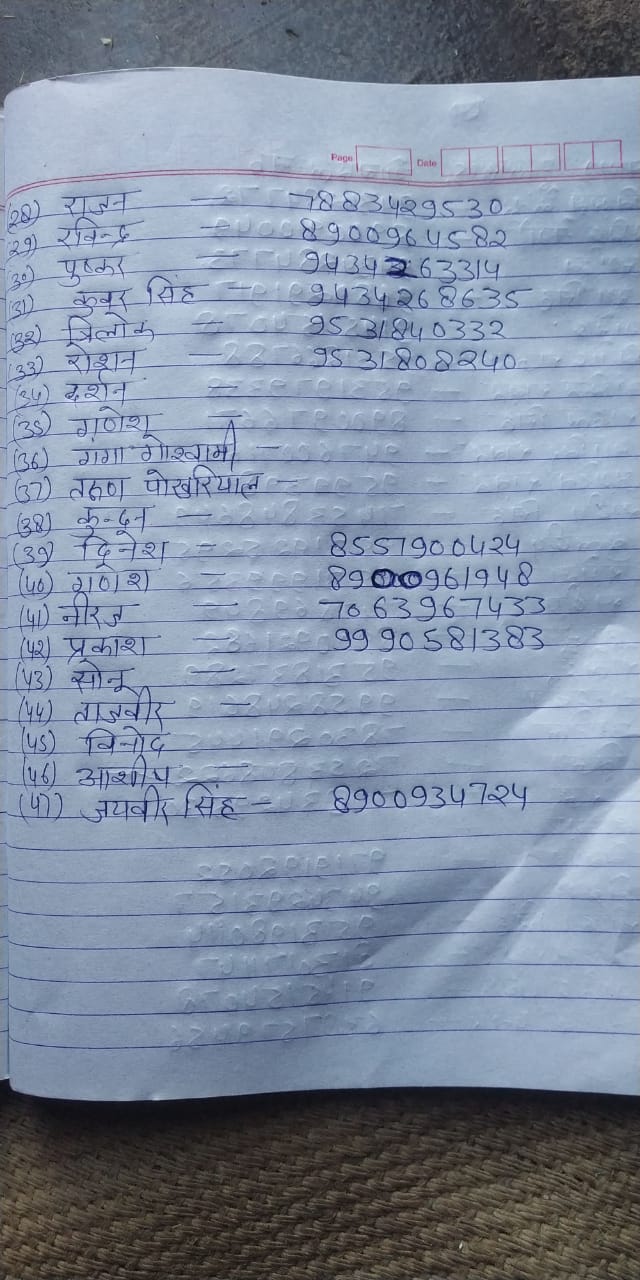 Page Date
(28) राजन — 7883429530
(29) रविन्द्र — 8900964582
(30) पुष्कर — 9434263314
(31) कुवर सिंह — 9434268635
(32) त्रिलोक — 9531840332
(33) रोशन — 9531808240
(34) दर्शन —
(35) गणेश —
(36) गंगा गोस्वामी —
(37) तरुण पोखरियाल —
(38) कुन्दन —
(39) दिनेश — 8557900424
(40) गणेश — 8900961948
(41) नीरज — 7063967433
(42) प्रकाश — 9990581383
(43) सोनू —
(44) ताजवीर —
(45) विनोद
(46) आशीष
(47) जयवीर सिंह — 8900934724